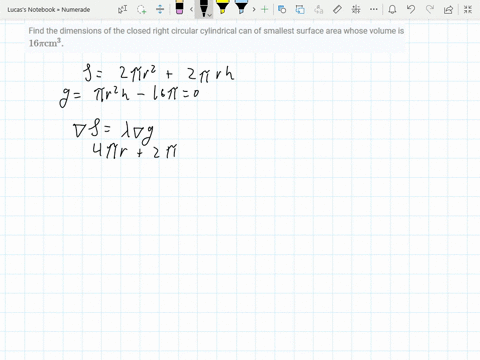 Lucas's Notebook + Numerade
Find the dimensions of the closed right circular cylindrical can of smallest surface area whose volume is
16πcm³.
S = 2πr² + 2πrh
g = πr²h - 16π = 0
∇S = λ∇g
4πr + 2π